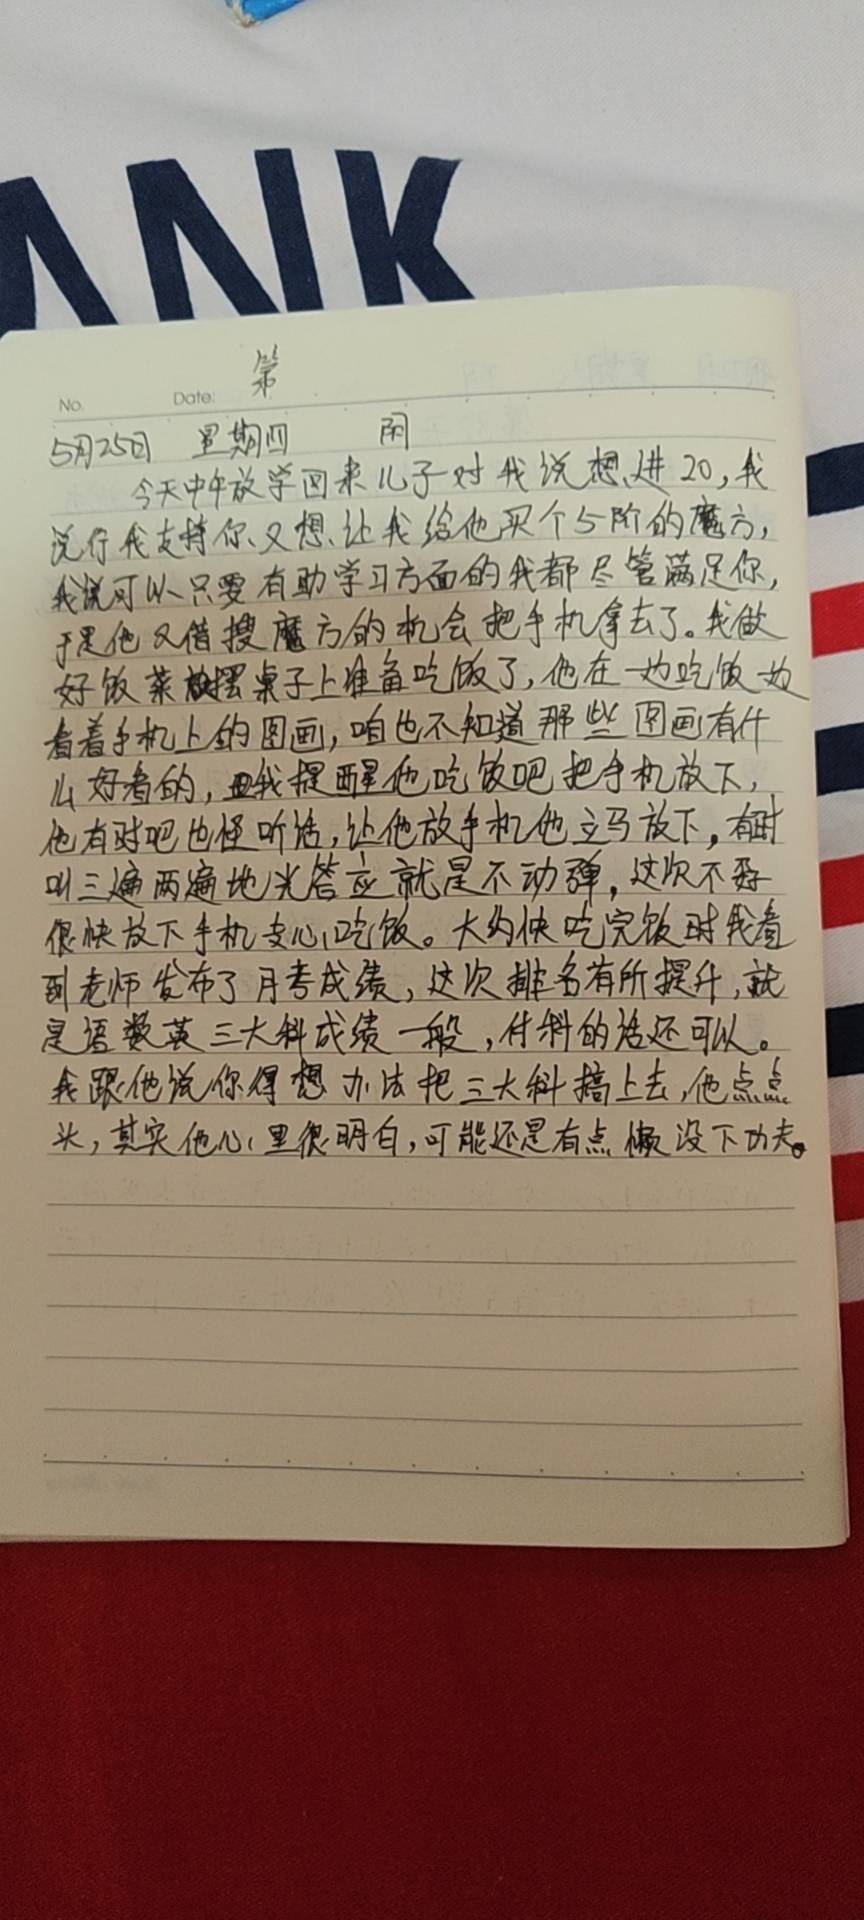 ANK
第
No. Date:
5月25日 星期四 雨
今天中午放学回来儿子对我说想进20,我
说行我支持你、又想让我给他买个5阶的魔方,
我说可以只要有助学习方面的我都尽管满足你,
于是他又借搜魔方的机会把手机拿去了。我做
好饭菜摆桌子上准备吃饭了,他在一边吃饭一边
看着手机上的图画,咱也不知道那些图画有什
么好看的,我提醒他吃饭吧把手机放下,
他有时吧也怪听话,让他放手机他立马放下,有时
叫三遍两遍地光答应就是不动弹,这次不孬
很快放下手机专心吃饭。大约快吃完饭时我看
到老师发布了月考成绩,这次排名有所提升,就
是语数英三大科成绩一般,付科的话还可以。
我跟他说你得想办法把三大科搞上去,他点点
头,其实他心里很明白,可能还是有点懒没下功夫。